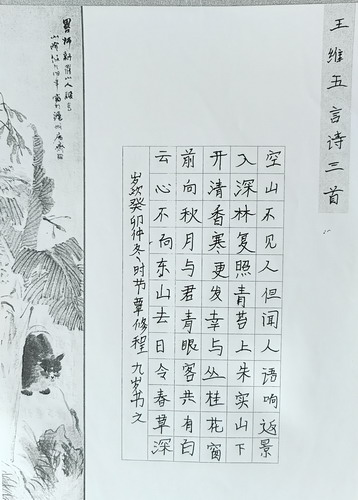 王维五言诗三首
空山不见人但闻人语响返景
入深林复照青苔上朱实山下
开清香寒更发幸与丛桂花窗
前向秋月与君青眼客共有白
云心不向东山去日令春草深
岁次癸卯仲冬时节 覃修程 九岁书之